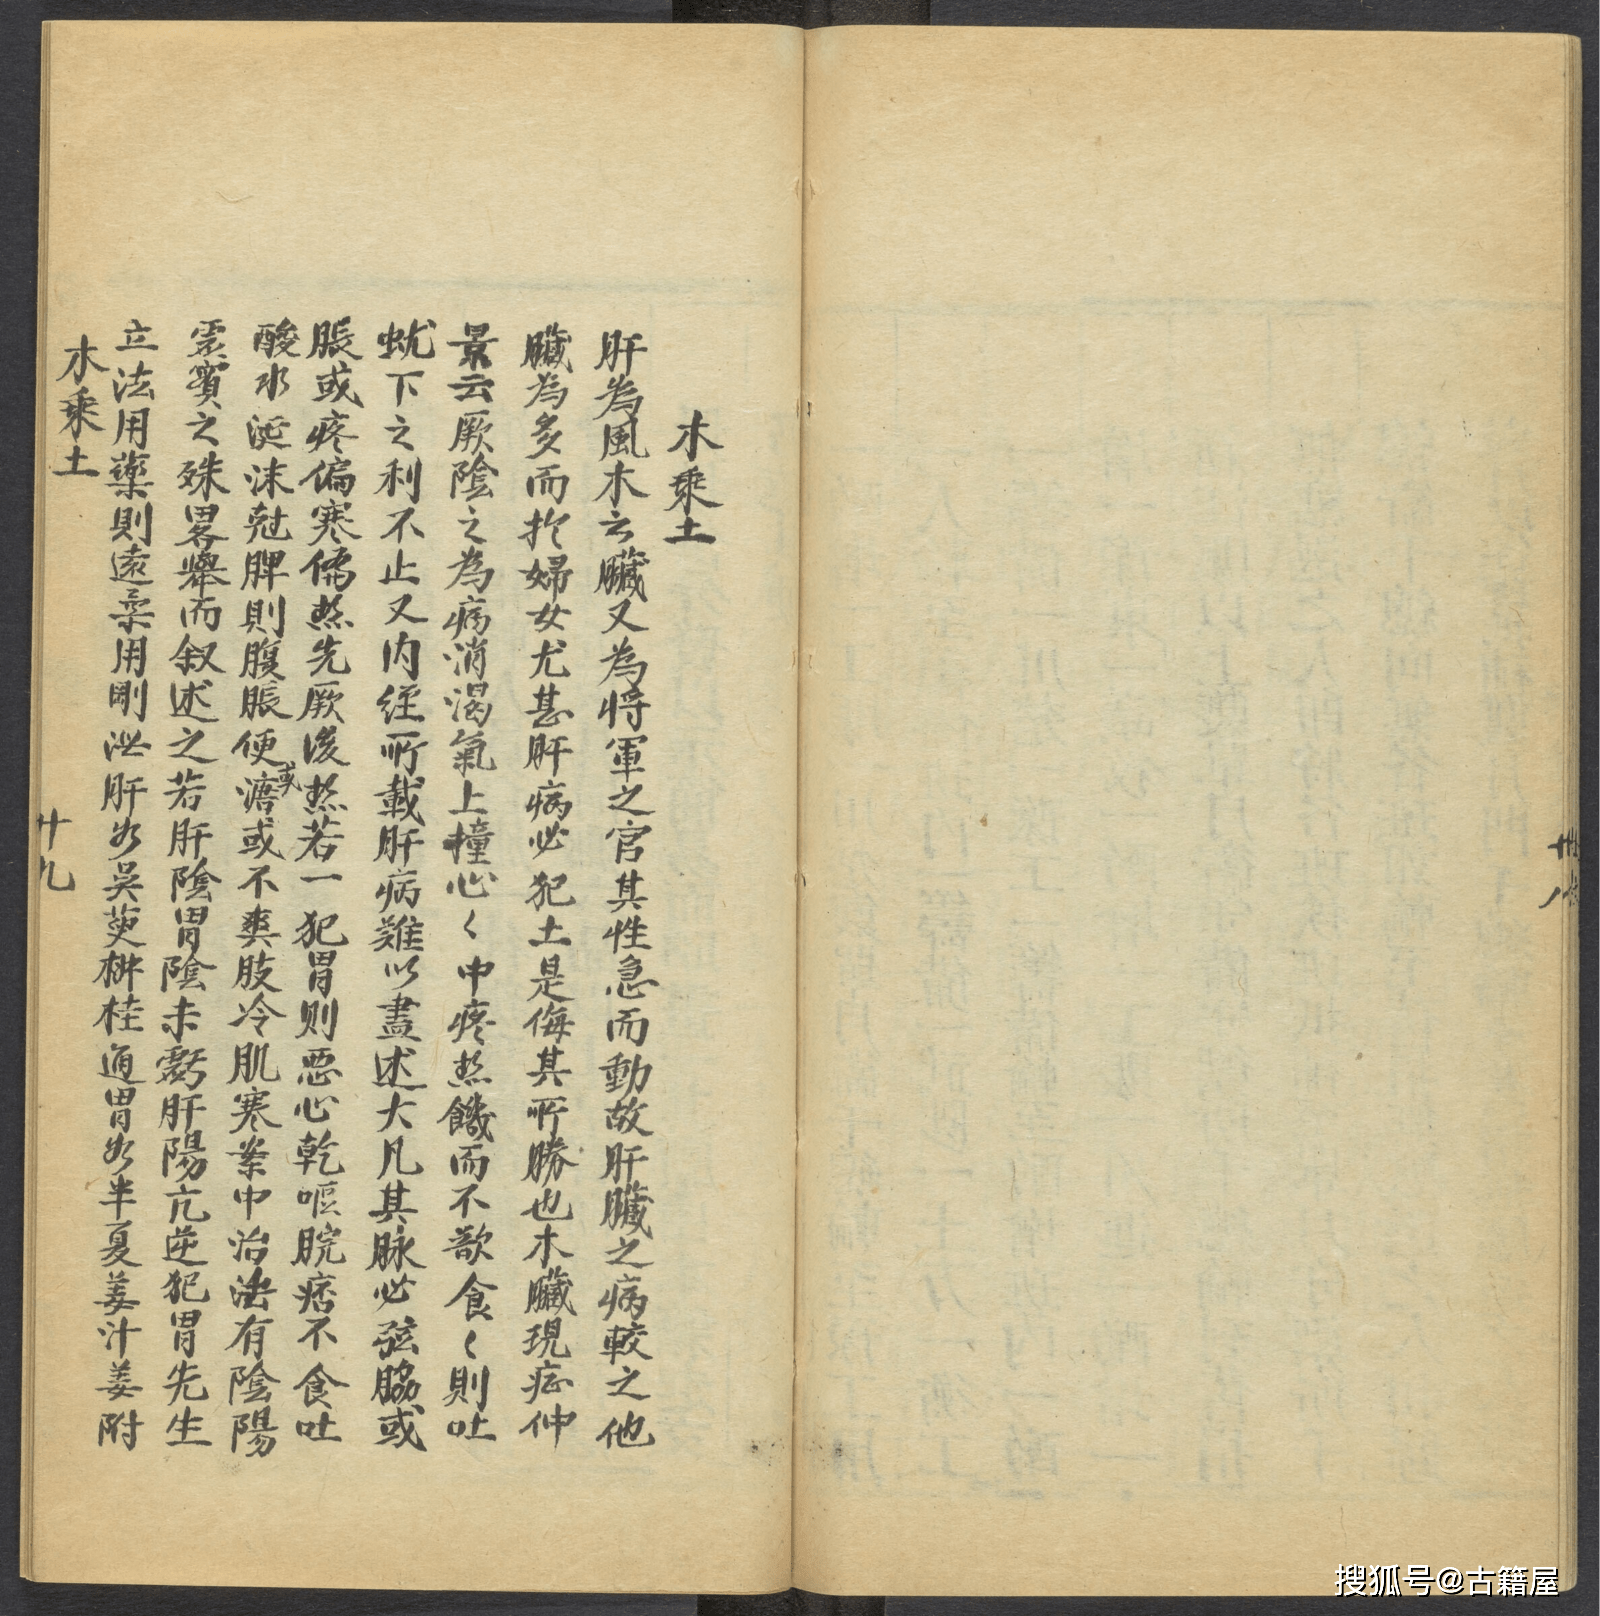 木乘土
肝為風木之臟又為将軍之官其性急而動故肝臟之病較之他
臟為多而扵婦女尤甚肝病必犯土是侮其所勝也木臟現症仲
景云厥陰之為病消渴氣上撞心〻中疼热饑而不欲食〻則吐
蚘下之利不止又内經所載肝病難以盡述大凡其脉必弦脇或
脹或疼偏寒偏热先厥後热若一犯胃则惡心乾嘔脘痞不食吐
酸水涎沫尅脾則腹脹便溏或或不爽肢冷肌寒案中治法有陰陽
虚實之殊畧舉而叙述之若肝陰胃陰未虧肝陽亢逆犯胃先生
立法用藥則遠柔用剛泄肝如吳萸椒桂通胃如半夏姜汁姜附
木乘土
廿九
搜狐号@古籍屋